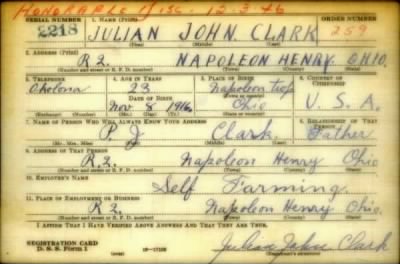 HONORABLE DISC. 12-3-46
SERIAL NUMBER 1. NAME (Print) ORDER NUMBER
2218 JULIAN JOHN CLARK 259
(First) (Middle) (Last)
2. ADDRESS (Print)
R 2. NAPOLEON HENRY OHIO.
(Number and street or R. F. D. number) (Town) (County) (State)
3. TELEPHONE 4. AGE IN YEARS 5. PLACE OF BIRTH 6. COUNTRY OF CITIZENSHIP
Okolona 23 Napoleon twp
DATE OF BIRTH Ohio U. S. A.
Nov 8 1916
(Exchange) (Number) (Mo.) (Day) (Yr.) (State or country)
7. NAME OF PERSON WHO WILL ALWAYS KNOW YOUR ADDRESS 8. RELATIONSHIP OF THAT PERSON
P. J. Clark Father
(Mr., Mrs., Miss) (First) (Middle) (Last)
9. ADDRESS OF THAT PERSON
R. 2. Napoleon Henry Ohio
(Number and street or R. F. D. number) (Town) (County) (State)
10. EMPLOYER'S NAME
Self Farming.
11. PLACE OF EMPLOYMENT OR BUSINESS
R 2 Napoleon Henry Ohio.
(Number and street or R. F. D. number) (Town) (County) (State)
I AFFIRM THAT I HAVE VERIFIED ABOVE ANSWERS AND THAT THEY ARE TRUE.
REGISTRATION CARD
D. S. S. Form 1 Julian John Clark
(Registrant's signature)